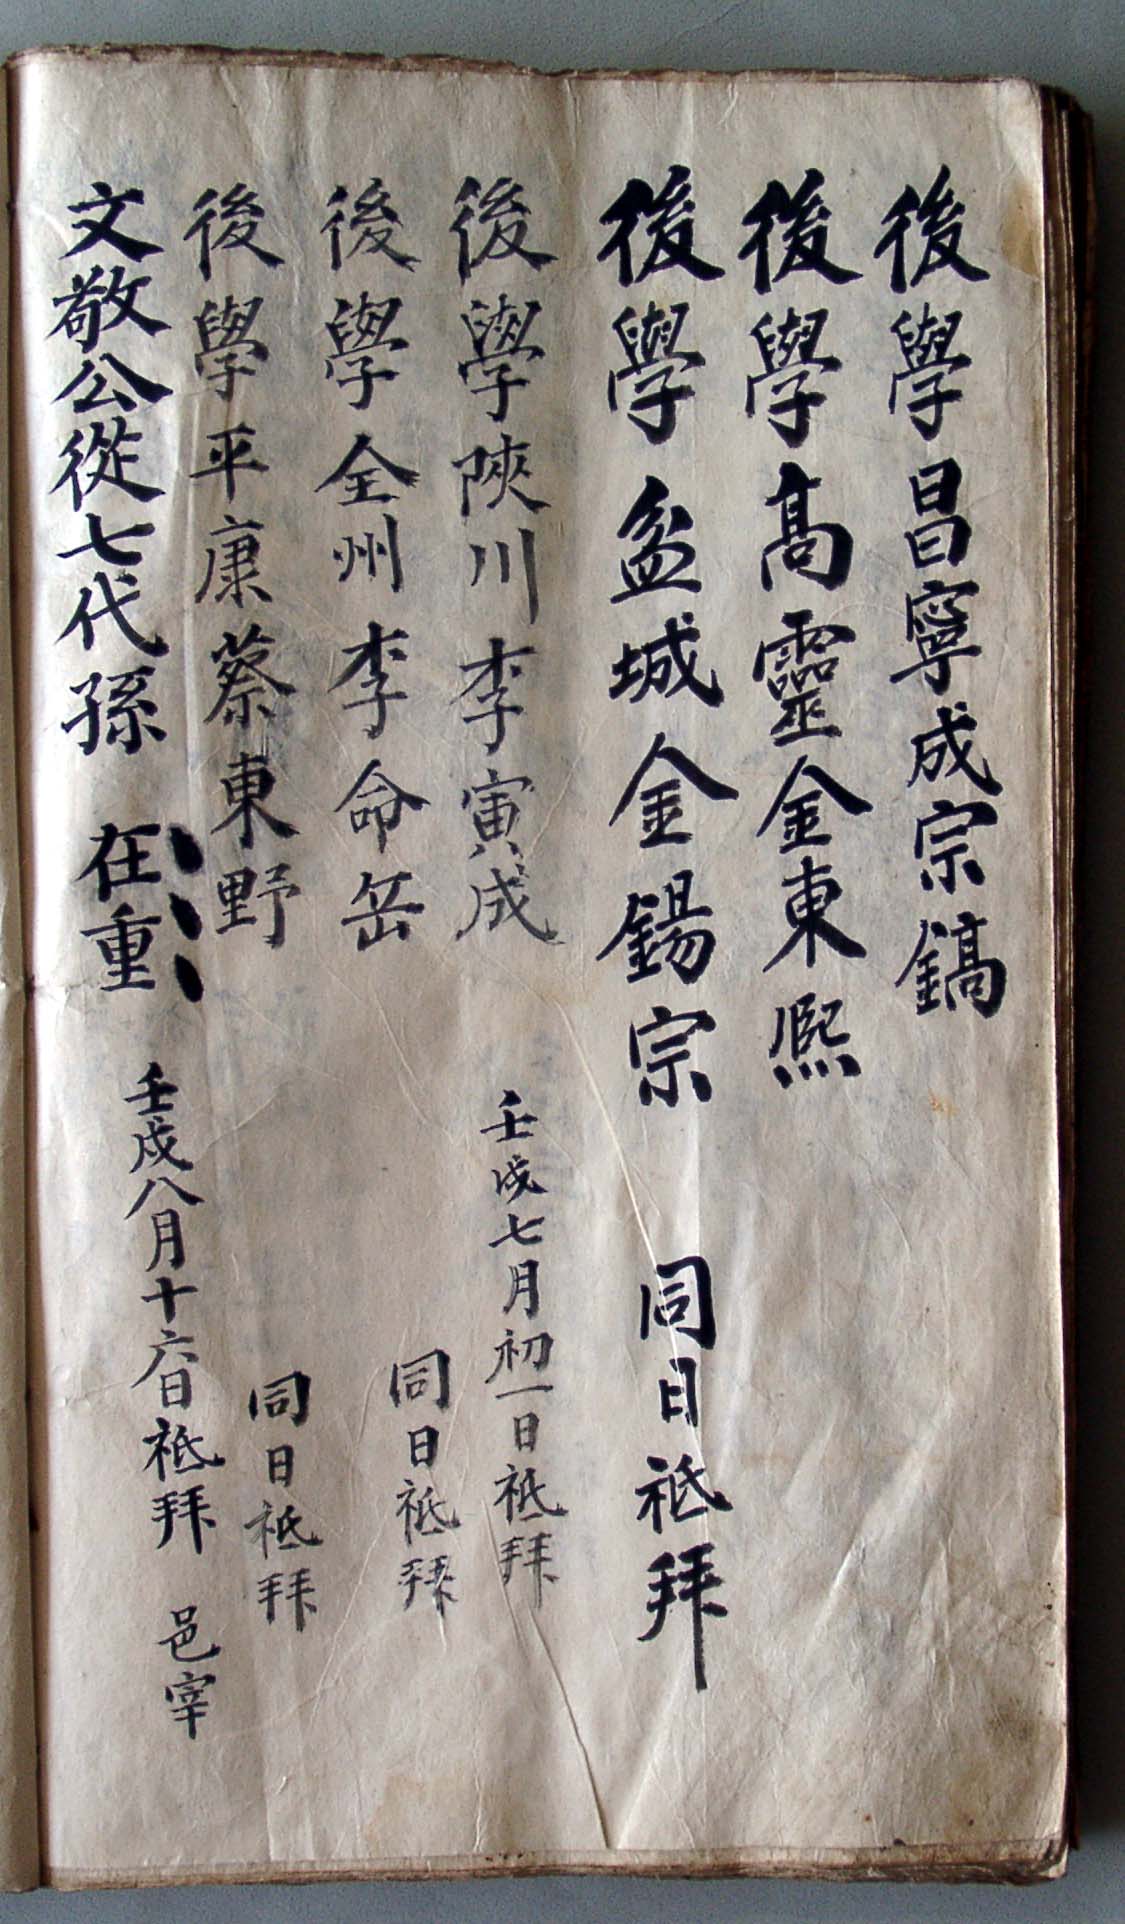 後學昌寧成宗鎬
後學高靈金東熙
後學盆城金錫宗 同日祗拜
後學陜川李寅成 壬戌七月初一日祗拜
後學全州李命岳 同日祗拜
後學平康蔡東野 同日祗拜
文敬公從七代孫 在重 壬戌八月十六日祗拜 邑宰